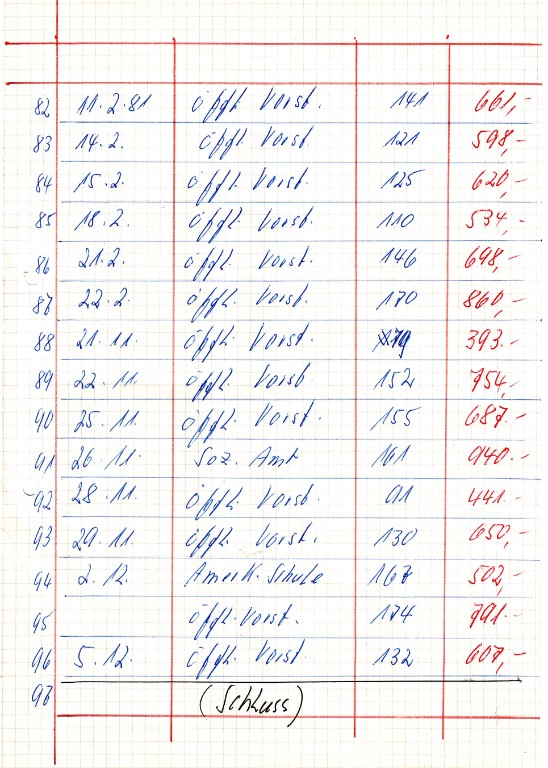 82 11.2.81 öffl. Vorst. 141 661,-
83 14.2. öffl. Vorst. 121 598,-
84 15.2. öffl. Vorst. 125 620,-
85 18.2. öffl. Vorst. 110 534,-
86 21.2. öffl. Vorst. 146 698,-
87 22.2. öffl. Vorst. 170 860,-
88 21.11. öffl. Vorst. 79 393.-
89 22.11. öffl. Vorst 152 754,-
90 25.11. öffl. Vorst. 155 687.-
91 26.11. Soz. Amt 161 940.-
92 28.11. öffl. Vorst. 91 441.-
93 29.11. öffl. Vorst. 130 650,-
94 2.12. Amerik. Schule 167 502,-
95 öffl. Vorst. 174 791.-
96 5.12. öffl. Vorst. 132 607,-
97 (Schluss)